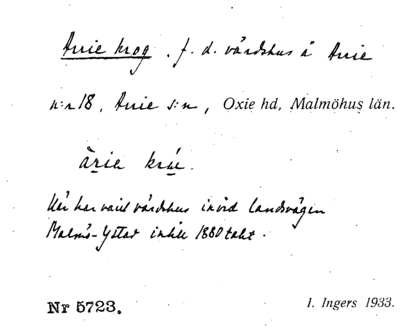 Arrie krog. f. d. värdshus å Arrie
n:r 18, Arrie s:n, Oxie hd, Malmöhus län.
àrie kró.
Här har varit värdshus invid landsvägen
Malmö-Ystad intill 1880 talet.
Nr 5723. I. Ingers 1933.